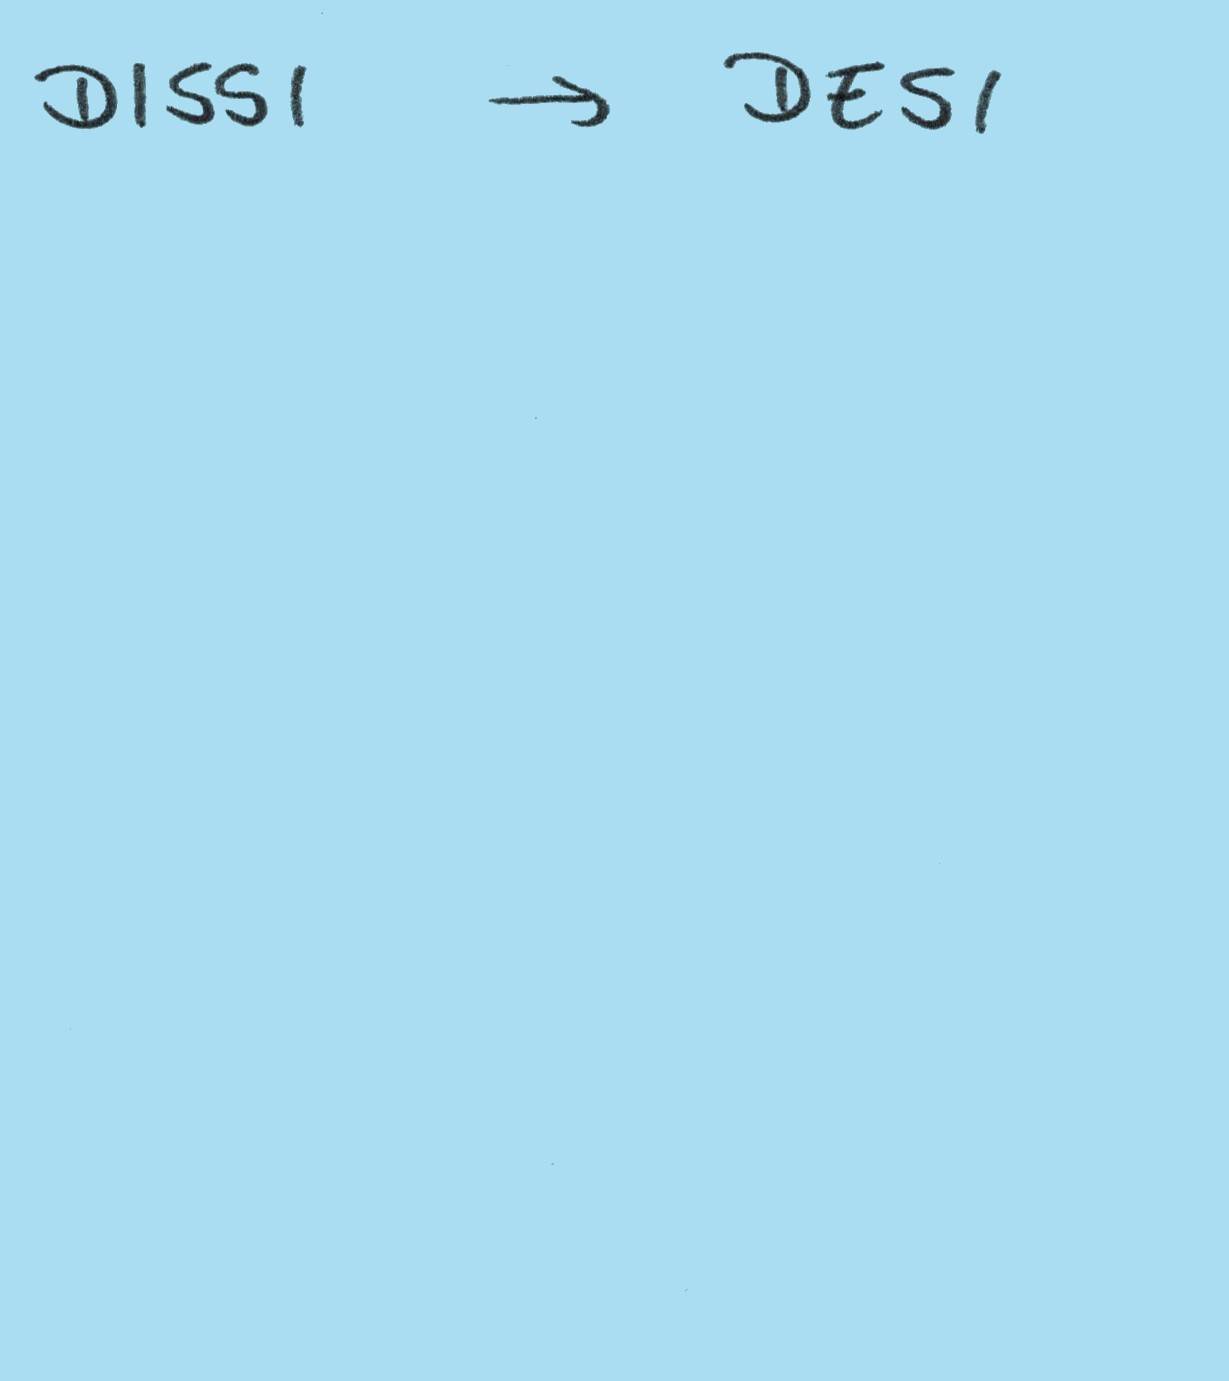 DISSI → DESI